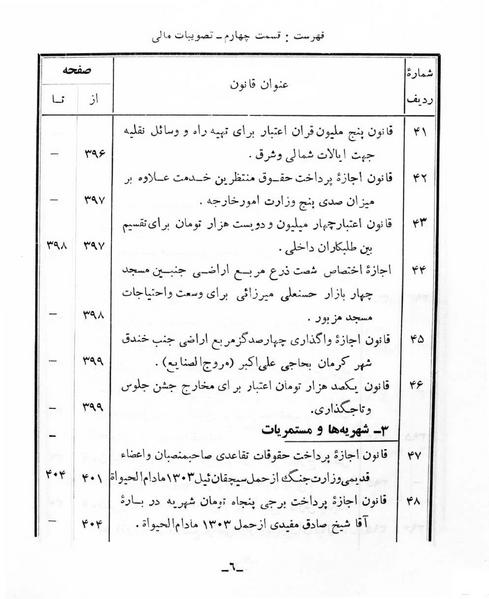 فهرست : قسمت چهارم ـ تصویبات مالی
شمارهٔ ردیف عنوان قانون صفحه
از تا
۴۱ قانون پنج ملیون قران اعتبار برای تهیه راه و وسائل نقلیه
جهت ایالات شمالی و شرق . ۳۹۶ –
۴۲ قانون اجازهٔ پرداخت حقوق منتظرین خدمت علاوه بر
میزان صدی پنج وزارت امورخارجه . ۳۹۷ –
۴۳ قانون اعتبار چهار میلیون و دویست هزار تومان برای تقسیم
بین طلبکاران داخلی . ۳۹۷ ۳۹۸
۴۴ اجازهٔ اختصاص شصت ذرع مربع اراضی جنبین مسجد
چهار بازار حسنعلی میرزائی برای وسعت واحتیاجات
مسجد مزبور . ۳۹۸ –
۴۵ قانون اجازهٔ واگذاری چهارصدگز مربع اراضی جنب خندق
شهر کرمان بحاجی علی‌اکبر (مروج‌الصنایع) . ۳۹۹ –
۴۶ قانون یکصد هزار تومان اعتبار برای مخارج جشن جلوس
و تاجگذاری. ۳۹۹ –
۳ـ شهریه‌ها و مستمریات –
۴۷ قانون اجازهٔ پرداخت حقوقات تقاعدی صاحبمنصبان واعضاء
قدیمی وزارت جنگ از حمل سیچقان ئیل ۱۳۰۳ مادام‌الحیوة ۴۰۱ ۴۰۴
۴۸ قانون اجازهٔ پرداخت برجی پنجاه تومان شهریه در بارهٔ
آقا شیخ صادق مفیدی از حمل ۱۳۰۳ مادام‌الحیوة . ۴۰۴ –
ـ۶ـ